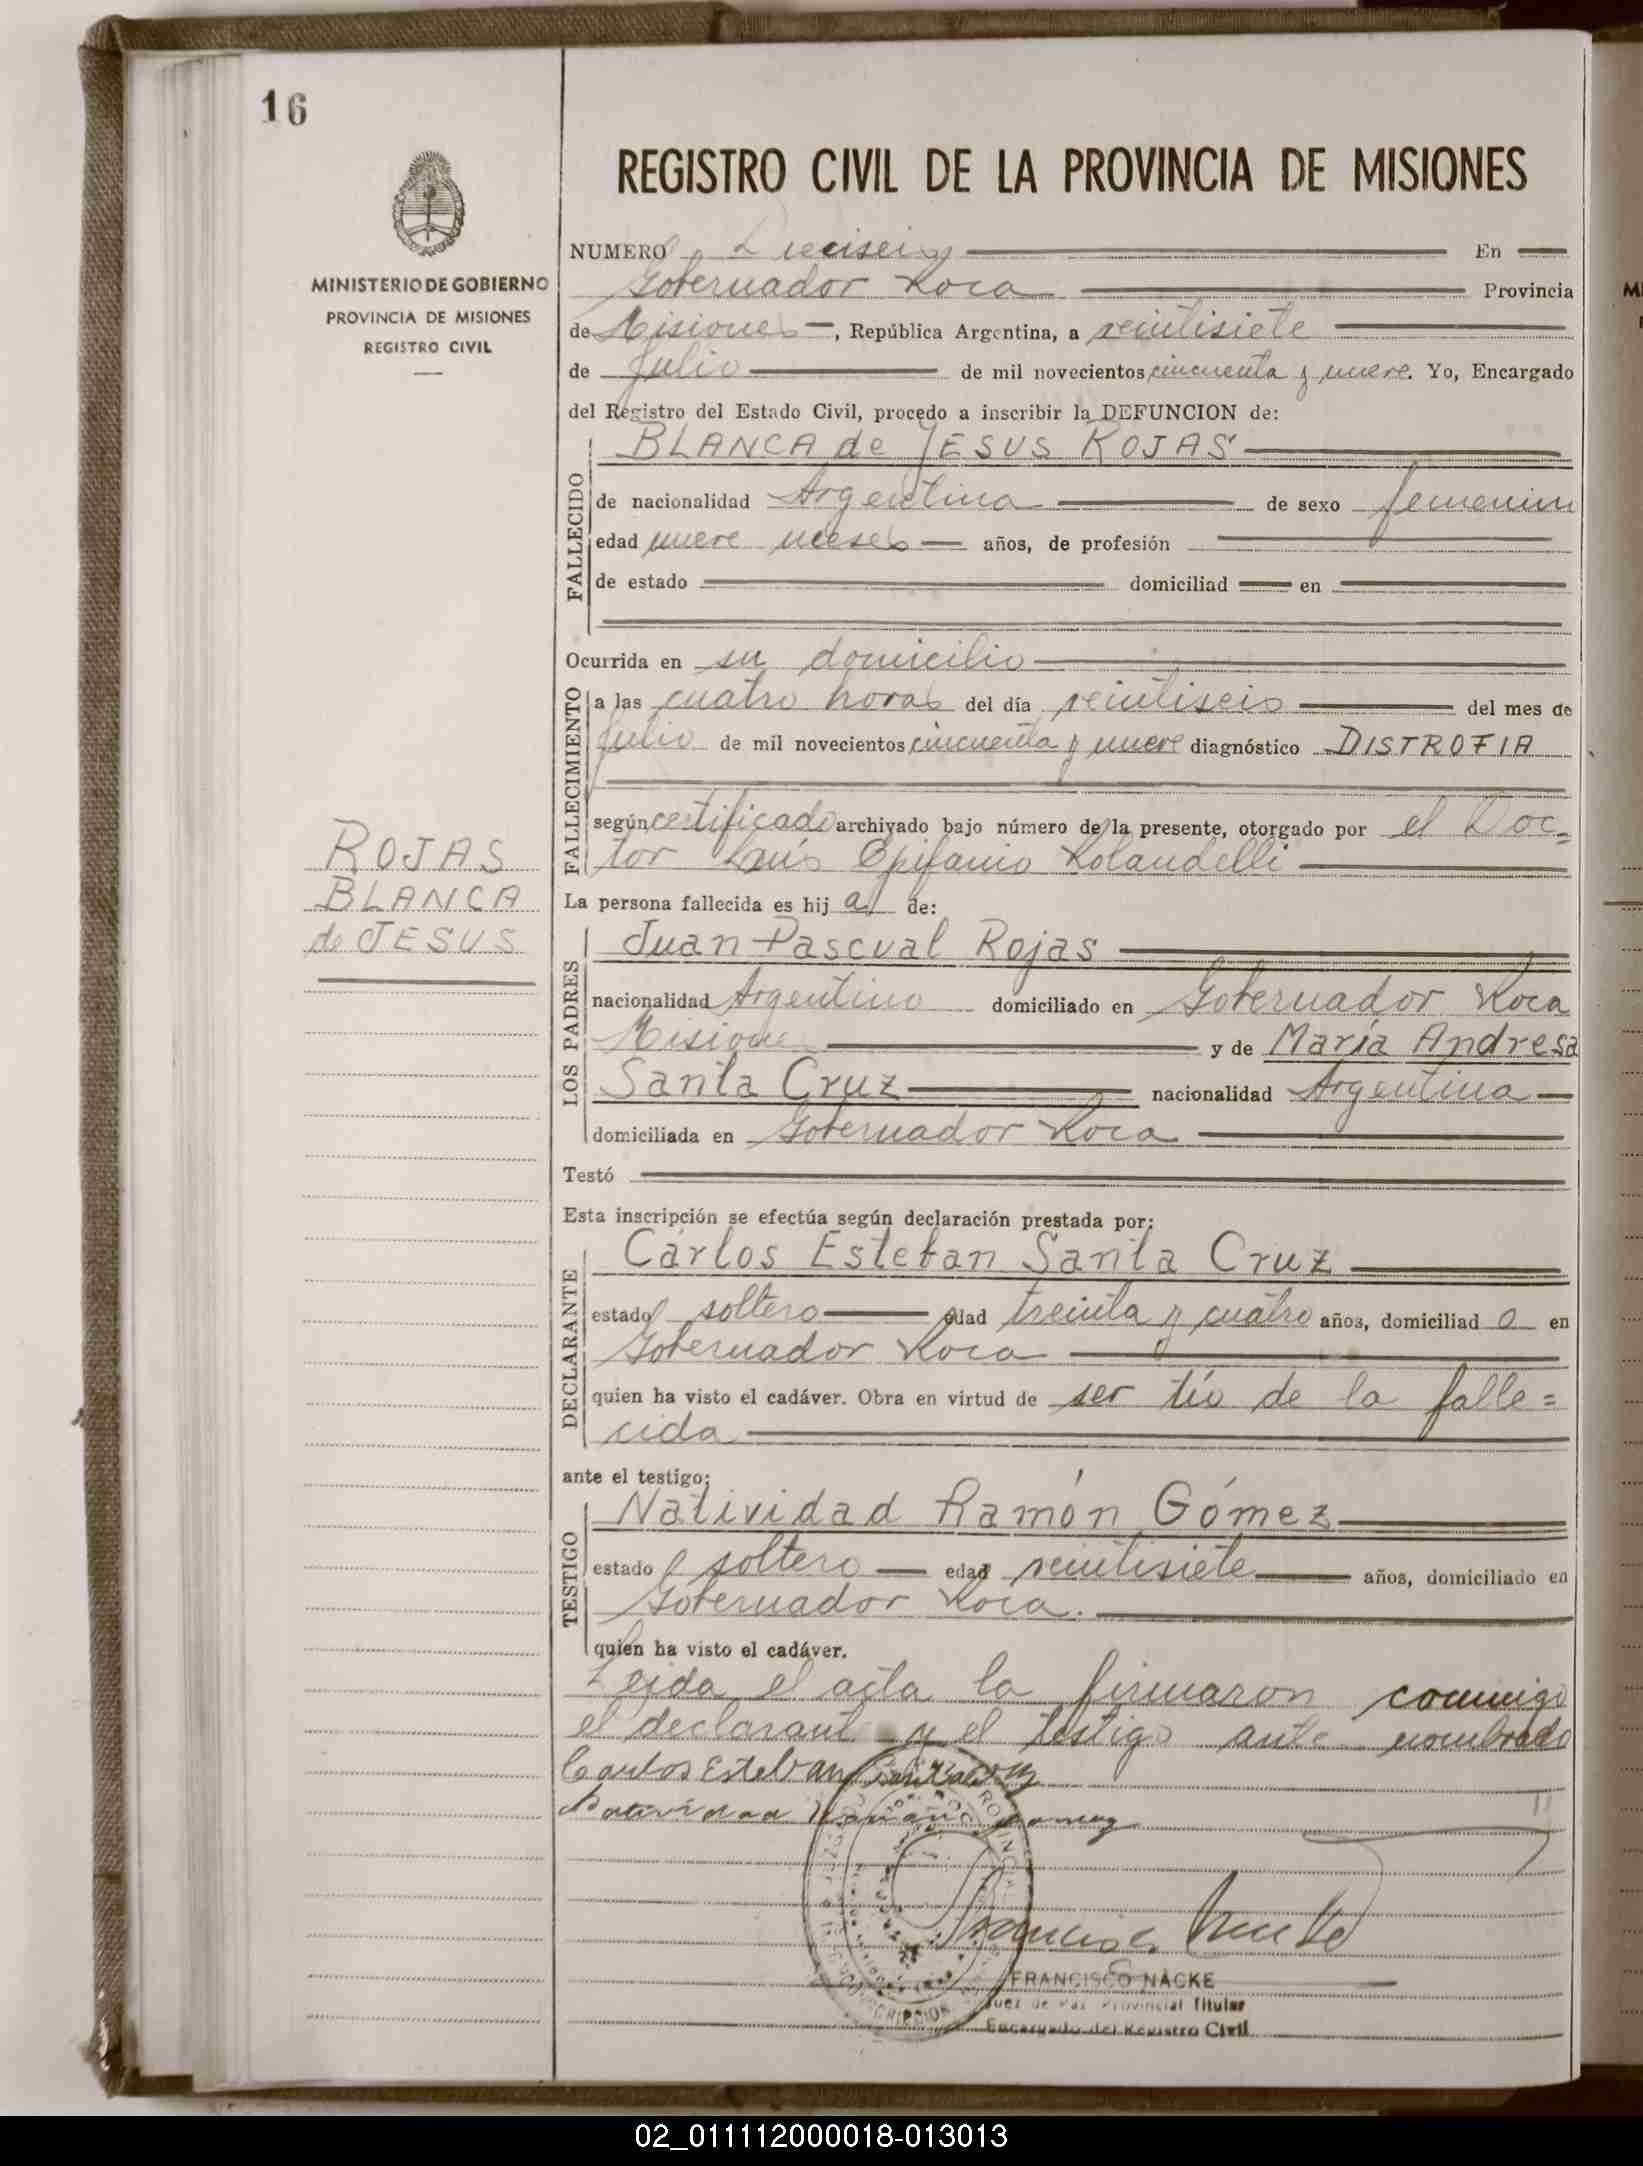 16
REGISTRO CIVIL DE LA PROVINCIA DE MISIONES
MINISTERIO DE GOBIERNO
PROVINCIA DE MISIONES
REGISTRO CIVIL
NUMERO Dieciseis En
Gobernador Roca Provincia
de Misiones, República Argentina, a veintisiete
de Julio de mil novecientos cincuenta y nueve. Yo, Encargado
del Registro del Estado Civil, procedo a inscribir la DEFUNCION de:
FALLECIDO
BLANCA de JESUS ROJAS
de nacionalidad Argentina de sexo femenin
edad nueve meses años, de profesión
de estado domiciliad en
Ocurrida en su domicilio
FALLECIMIENTO
a las cuatro horas del día veintiseis del mes de
Julio de mil novecientos cincuenta y nueve diagnóstico DISTROFIA
según certificado archivado bajo número de la presente, otorgado por el Doc=
tor Luis Epifanio Rolandelli
ROJAS
BLANCA
de JESUS
La persona fallecida es hij a de:
LOS PADRES
Juan Pascual Rojas
nacionalidad Argentino domiciliado en Gobernador Roca
Misiones y de María Andresa
Santa Cruz nacionalidad Argentina
domiciliada en Gobernador Roca
Testó
Esta inscripción se efectúa según declaración prestada por:
DECLARANTE
Carlos Esteban Santa Cruz
estado soltero edad treinta y cuatro años, domiciliad o en
Gobernador Roca
quien ha visto el cadáver. Obra en virtud de ser tío de la falle=
cida
ante el testigo:
TESTIGO
Natividad Ramón Gómez
estado soltero edad veintisiete años, domiciliado en
Gobernador Roca.
quien ha visto el cadáver.
Leida el acta la firmaron conmigo
el declarante y el testigo ante nombrado
Carlos Esteban Santa Cruz
Natividad Ramon Gomez
FRANCISCO NACKE
Juez de Paz Provincial Titular
Encargado del Registro Civil
02_011112000018-013013